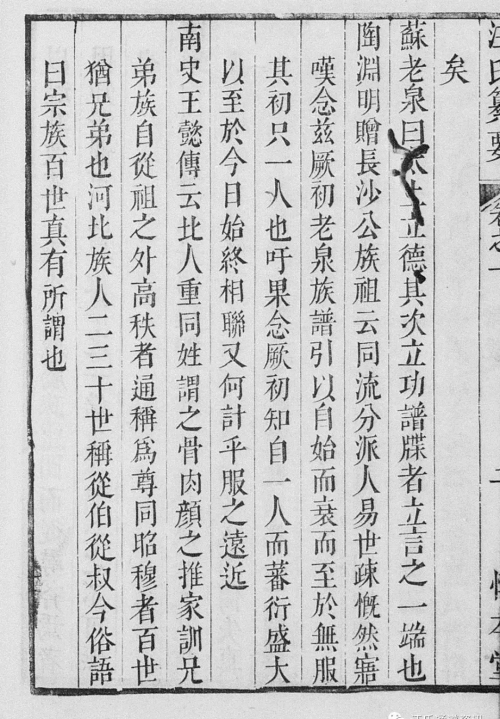 氏纂要 卷之一 二
矣
蘇老泉曰太上立德其次立功譜牒者立言之一端也
陶淵明贈長沙公族祖云同流分派人易世疎慨然寤
嘆念兹厥初老泉族譜引以自始而衰而至於無服
其初只一人也吁果念厥初知自一人而蕃衍盛大
以至於今日始終相聯又何計乎服之遠近
南史王懿傳云比人重同姓謂之骨肉顏之推家訓兄
弟族自從祖之外高秩者通稱爲尊同昭穆者百世
猶兄弟也河比族人二三十世稱從伯從叔今俗語
曰宗族百世真有所謂也